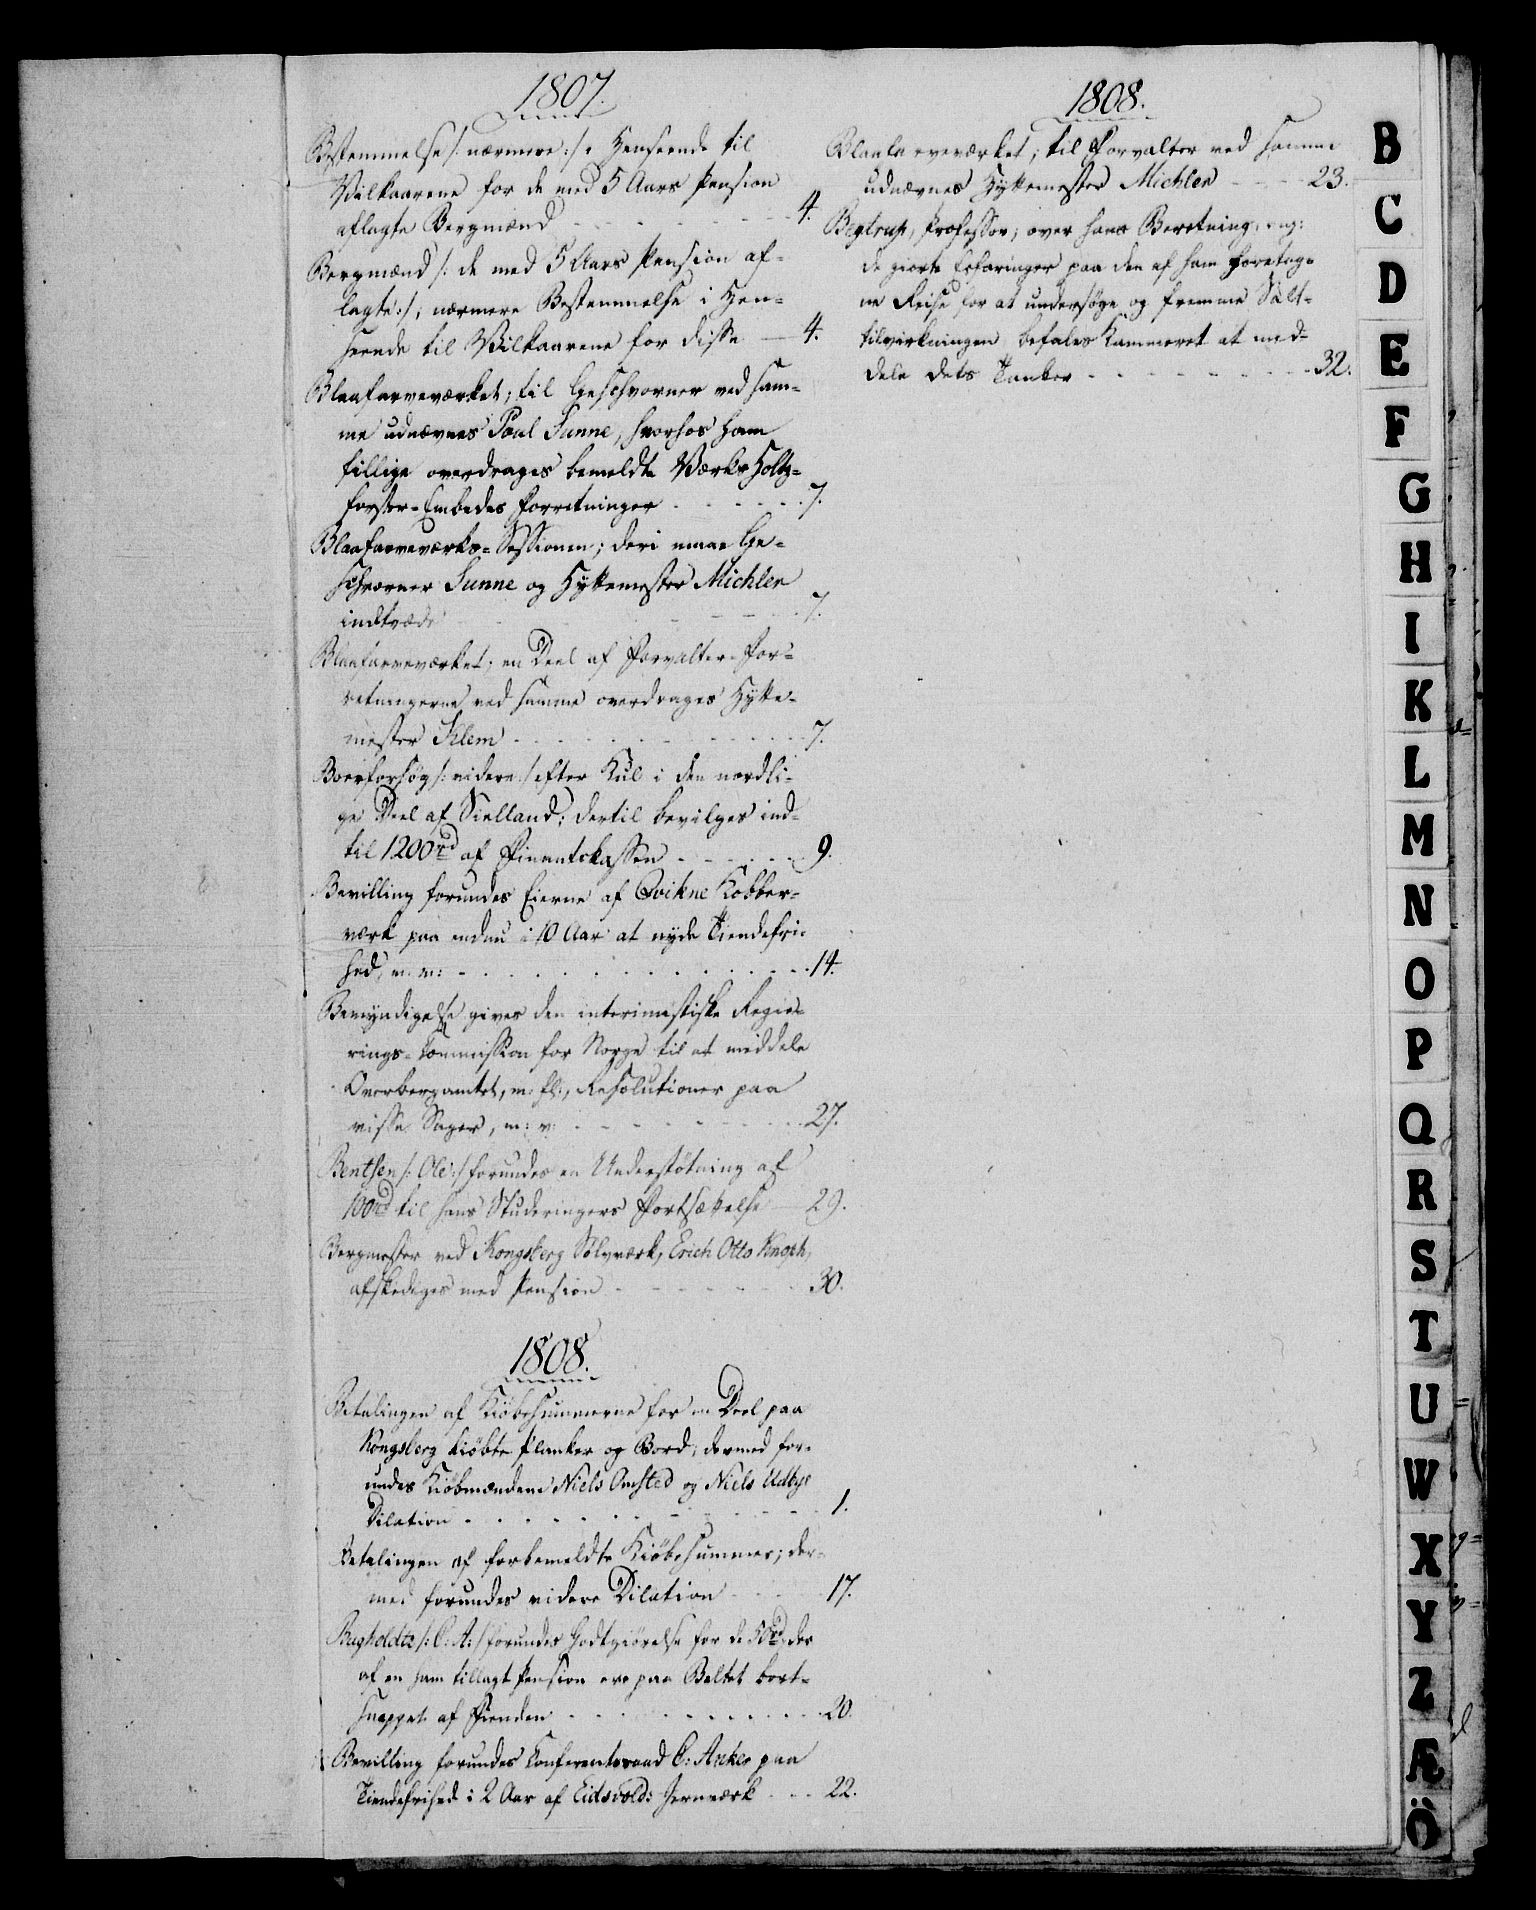 1807.
Bestemmelse /: nærmere :/ i Henseende til
Vilkaarene for de med 5 Aars Pension
aflagte Bergmænd - - - - 4.
Bergmænd /: de med 5 Aars Pension af-
lagte :/, nærmere Bestemmelse i Hen-
seende til Vilkaarene for disse - 4.
Blaafarveværket; til Geschvorner ved sam-
me udnævnes Poul Sunne, hvorhos ham
tillige overdrages bemeldte Værks Holtz-
forster-Embedes Forretninger - - - 7.
Blaafarveværks-Sessionen; deri maae Ge-
schvorner Sunne og Hyttemester Michler
indtræde - - - - 7.
Blaafarveværket; en Deel af Forvalter-For-
retningerne ved samme overdrages Hytte-
mester Klem - - - - 7.
Boerforsøg /: videre :/ efter Kul i den nordli-
ge Deel af Sielland; dertil bevilges ind-
til 1200rd af Finantskassen - - - 9.
Bevilling forundes Eierne af Qvikne Kobber-
værk paa endnu i 10 Aar at nyde Tiendefri-
hed, m: m: - - - - 14.
Bemyndigelse gives den interimistiske Regie-
rings-Commission for Norge til at meddele
Overbergamtet, m: fl:, Resolutioner paa
visse Sager, m: v: - - - - 27.
Bentsen /: Ole :/ forundes en Understøtning af
100rd til hans Studeringers Fortsættelse - 29.
Bergmester ved Kongsberg Sølvværk, Erich Otto Knoph,
afskediges med Pension - - - - 30.
1808.
Betalingen af Kiøbesummerne for en Deel paa
Kongsberg kiøbte Planker og Bord; dermed for-
undes Kiøbmændene Niels Omsted og Niels Udbye
Dilation - - - - 1.
Betalingen af forbemeldte Kiøbesummer; der-
med forundes videre Dilation - - - 17.
Bugholdts /: C: A: / forundes Godtgiørelse for de 50rd, der
af en ham tillagt Pension ere paa Beltet bort-
snappet af Fienden - - - - 20.
Bevilling forundes Conferentsraad C: Anker paa
Tiendefrihed i 2 Aar af Eidsvolds Jernværk - - - 22.
1808.
Blaafarveværket; til Forvalter ved samme
udnævnes Hyttemester Michler - - - 23.
Begtrup, Professor; over hans Beretning, ang:
de giorte Erfaringer paa den af ham foretag-
ne Reise for at undersøge og fremme Salt-
tilvirkningen befales Kammeret at med-
dele dets Tanker - - - - 32.
B
C
D
E
F
G
H
I
K
L
M
N
O
P
Q
R
S
T
U
W
X
Y
Z
Æ
Ö